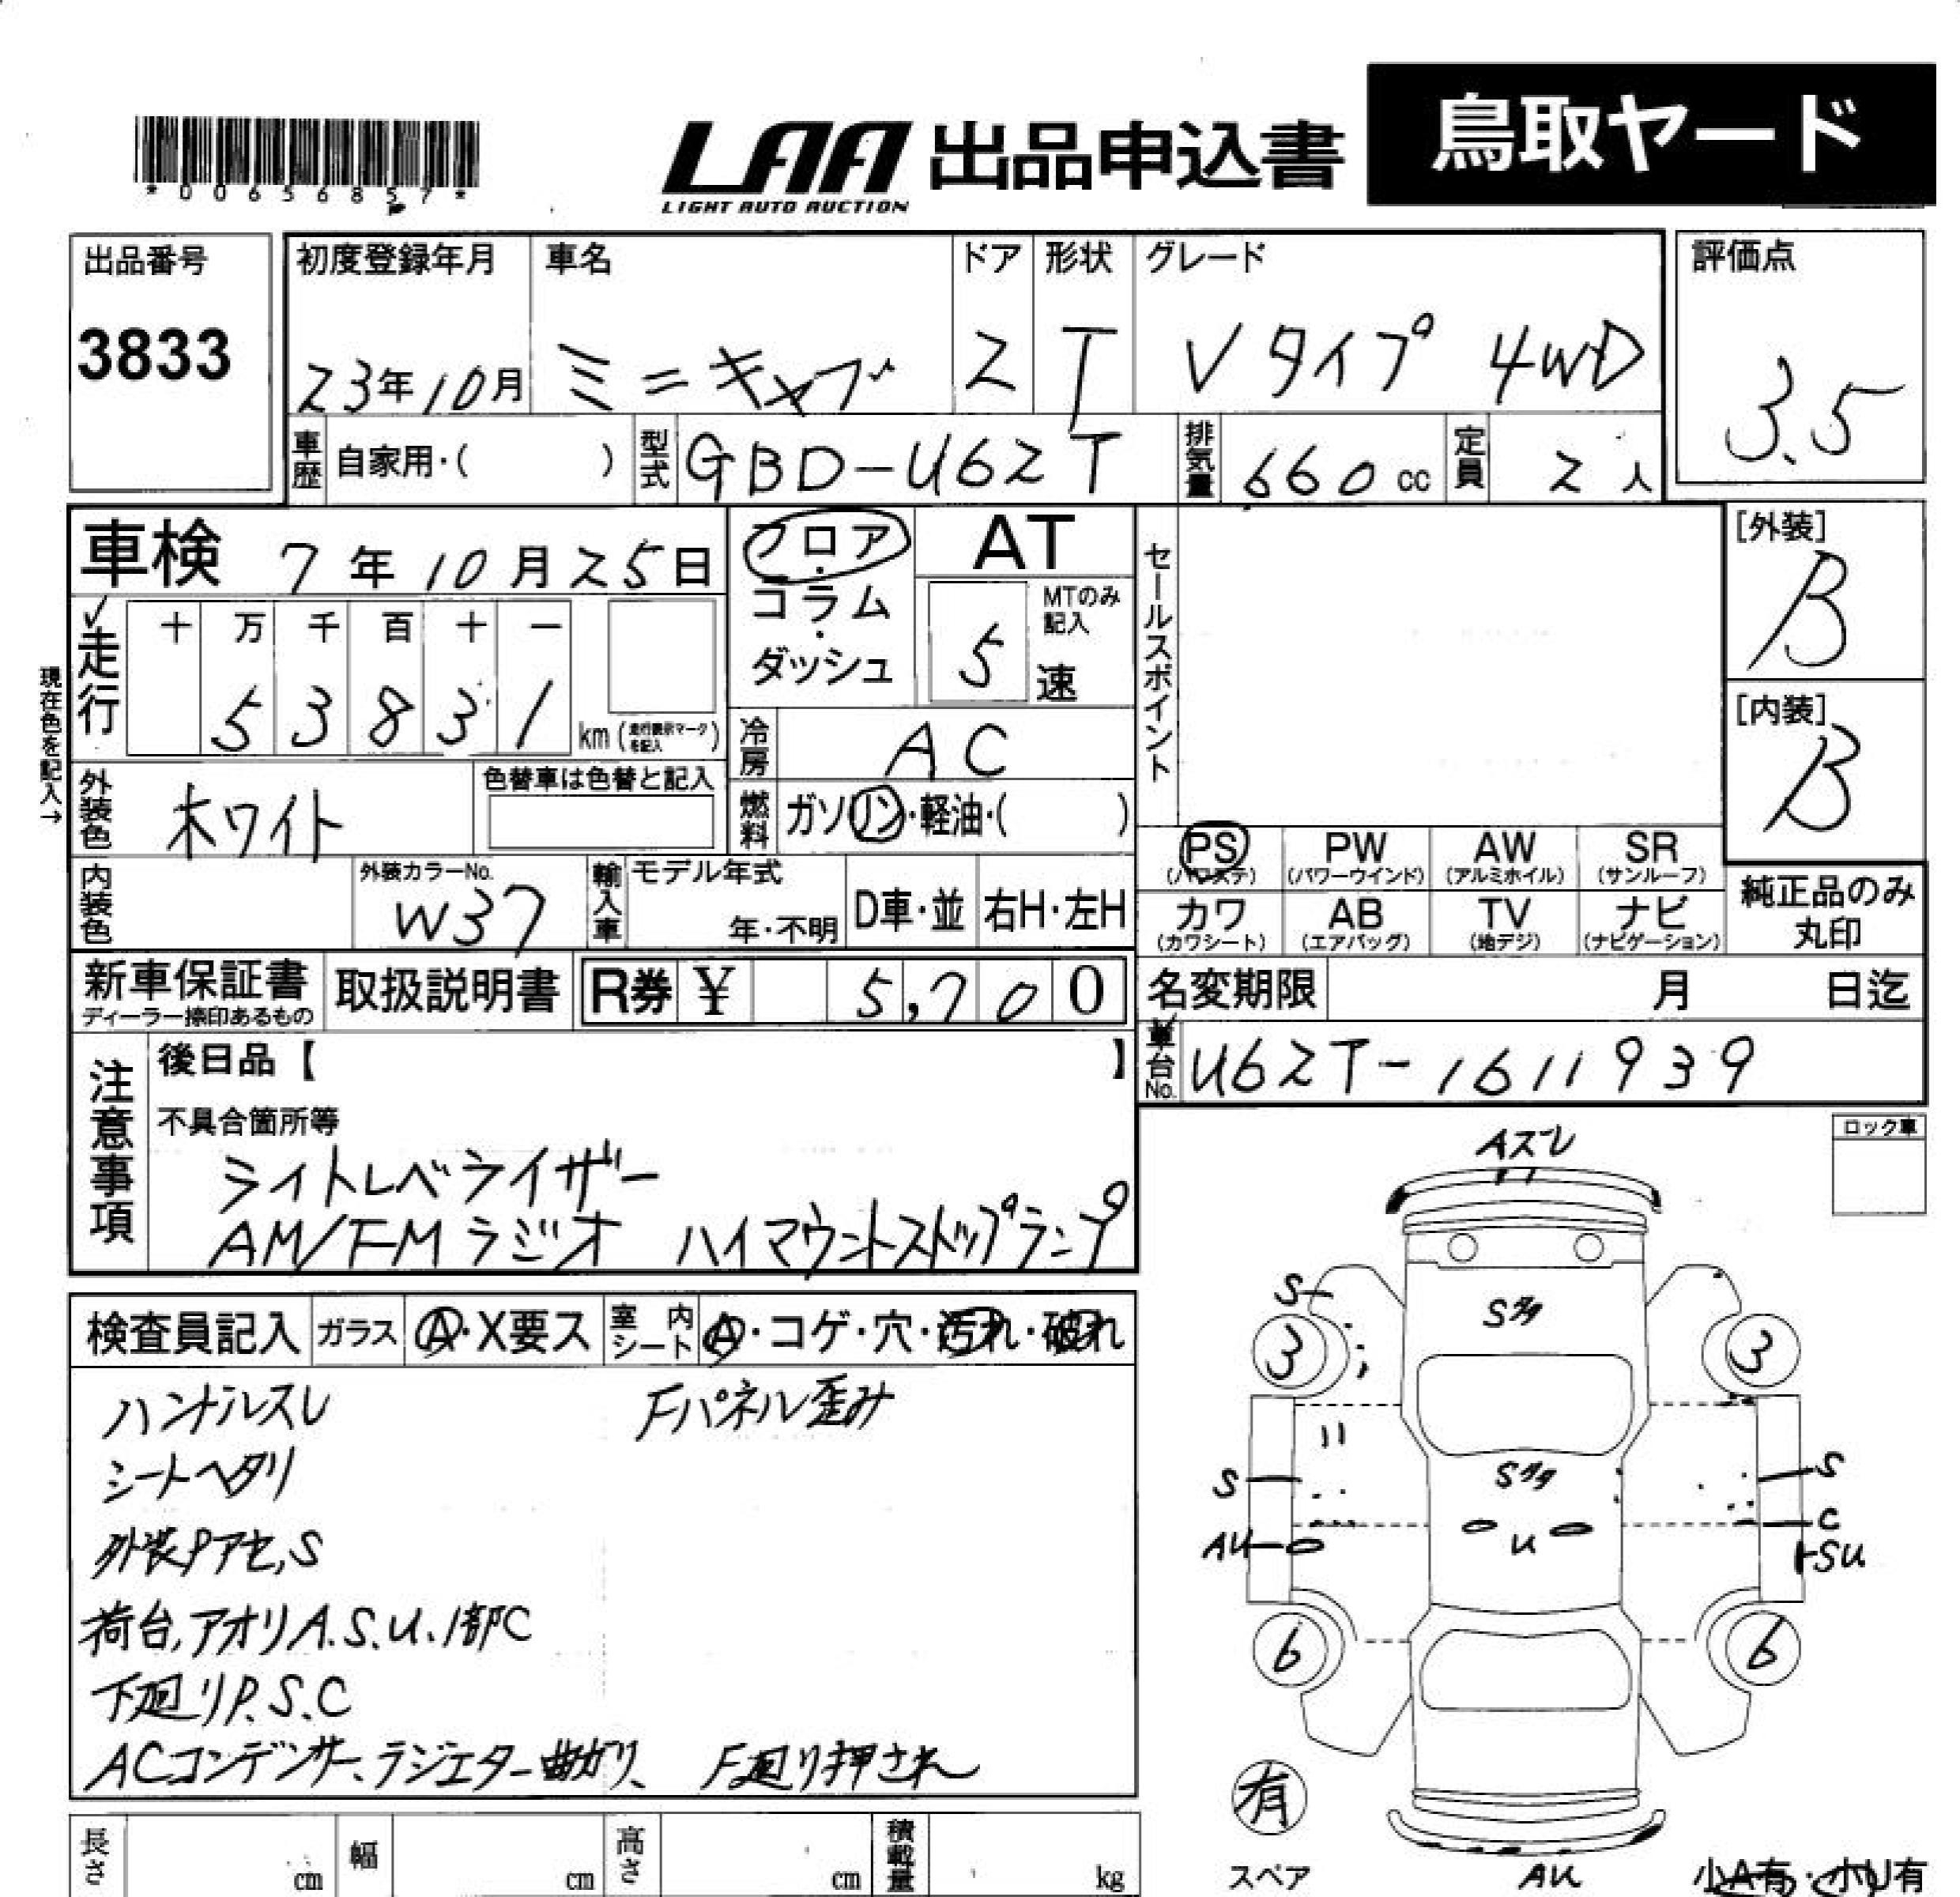 *00656857*
LAA 出品申込書 鳥取ヤード
LIGHT AUTO AUCTION
出品番号 初度登録年月 車名 ドア 形状 グレード 評価点
3833 23年10月 ミニキャブ 2 T Vタイプ 4WD 3.5
車歴 自家用・( ) 型式 GBD-U62T 排気量 660cc 定員 2人
車検 7年10月25日 フロア・コラム・ダッシュ AT セールスポイント [外装]
B
走行 十 万 千 百 十 一 5 MTのみ記入 速
53831 km (走行表示マークを記入) [内装]
現在色を記入→ 冷房 AC B
外装色 ホワイト 色替車は色替と記入 燃料 ガソリン・軽油・( )
PS PW AW SR
(パワステ) (パワーウインド) (アルミホイル) (サンルーフ)
内装色 外装カラーNo. W37 輸入車 モデル年式 年・不明 D車・並 右H・左H
カワ AB TV ナビ 純正品のみ
(カワシート) (エアバッグ) (地デジ) (ナビゲーション) 丸印
新車保証書 取扱説明書 R券 ¥ 5,700 名変期限 月 日迄
ディーラー捺印あるもの
車台No. U62T-1611939
注意事項 後日品【 】
不具合箇所等
ライトレベライザー
AM/FMラジオ ハイマウントストップランプ
ロック車
検査員記入 ガラス A・X要ス 室内シート A・コゲ・穴・汚れ・破れ
ハンドルスレ Fパネル歪み
シートヘタリ
外装Pアセ,S
荷台,アオリA.S.U.1部C
下廻りP.S.C
ACコンデンサー、ラジエター曲がり、 F廻り押され
Aズレ
S
3 3
S S
AU U C
SU
6 6
有
スペア AU 小A有・小U有
長さ cm 幅 cm 高さ cm 積載量 kg